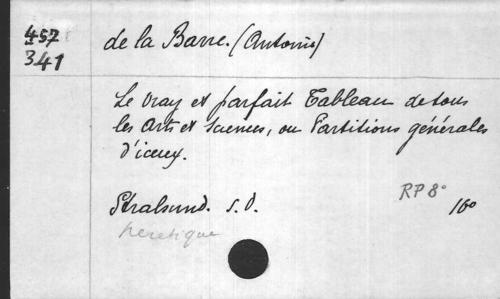 457
341
de la Barre. (Antoine)
Le vray et parfait Tableau de tous
les Arts et Sciences, ou Partitions générales
d'iceux.
RP 8°
Stralsund. s.d. 160
heretique